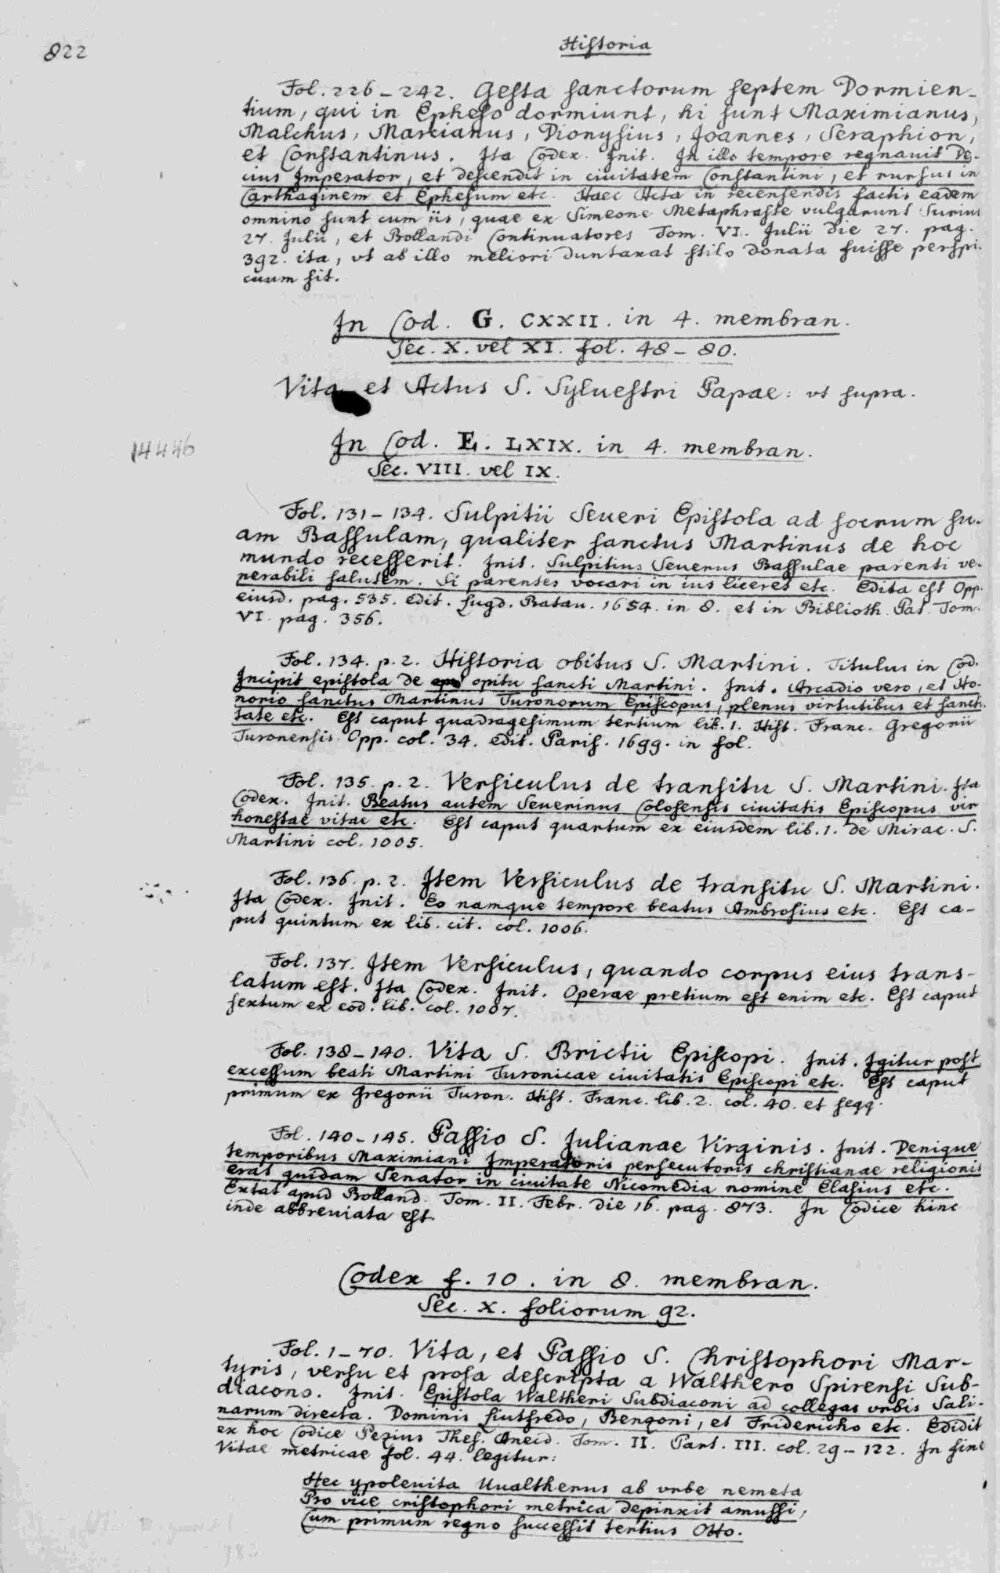 822
Historia
Fol. 226 – 242. Gesta sanctorum septem Dormien-
tium, qui in Epheso dormiunt, hi sunt Maximianus,
Malchus, Marcianus, Dionysius, Joannes, Seraphion,
et Constantinus. Ita Codex. Init. In illo tempore regnauit De-
cius Imperator, et descendit in ciuitatem Constantini, et rursus in
Carthaginem et Ephesum etc. Haec Acta in recensendis factis eadem
omnino sunt cum iis, quae ex Simeone Metaphraste vulgarunt Surius
27. Julii, et Bollandi Continuatores Tom. VI. Julii die 27. pag.
392. ita, vt ab illo meliori duntaxat stilo donata fuisse perspi-
cuum sit.
In Cod. G. CXXII. in 4. membran.
Sec. X. vel XI. fol. 48 – 80.
Vita et Actus S. Syluestri Papae: vt supra.
14446
In Cod. E. LXIX. in 4. membran.
Sec. VIII. vel IX.
Fol. 131 – 134. Sulpitii Seueri Epistola ad socrum su-
am Bassulam, qualiter sanctus Martinus de hoc
mundo recesserit. Init. Sulpitius Seuerus Bassulae parenti ve-
nerabili salutem. Si parentes vocari in ius liceret etc. Edita est Opp.
eiusd. pag. 535. edit. Lugd. Batau. 1654. in 8. et in Biblioth. Pat. Tom.
VI. pag. 356.
Fol. 134. p. 2. Historia obitus S. Martini. Titulus in Cod.
Incipit epistola de opitu sancti Martini. Init. Arcadio vero, et Ho-
norio sanctus Martinus Turonorum Episcopus, plenus virtutibus et sancti-
tate etc. Est caput quadragesimum tertium lib. 1. Hist. Franc. Gregorii
Turonensis Opp. col. 34. edit. Paris. 1699. in fol.
Fol. 135. p. 2. Versiculus de transitu S. Martini. Ita
Codex. Init. Beatus autem Seuerinus Colosensis ciuitatis Episcopus vir
honestae vitae etc. Est caput quartum ex eiusdem lib. 1. de Mirac. S.
Martini col. 1005.
Fol. 136. p. 2. Item Versiculus de transitu S. Martini.
Ita Codex. Init. Eo namque tempore beatus Ambrosius etc. Est ca-
put quintum ex lib. cit. col. 1006.
Fol. 137. Item Versiculus, quando corpus eius trans-
latum est. Ita Codex. Init. Operae pretium est enim etc. Est caput
sextum ex eod. lib. col. 1007.
Fol. 138 – 140. Vita S. Brictii Episcopi. Init. Igitur post
excessum beati Martini Turonicae ciuitatis Episcopi etc. Est caput
primum ex Gregorii Turon. Hist. Franc. lib. 2. col. 40. et seqq.
Fol. 140 – 145. Passio S. Julianae Virginis. Init. Denique
temporibus Maximiani Imperatoris persecutoris christianae religionis
erat quidam Senator in ciuitate Nicomedia nomine Elasius etc.
Extat apud Bolland. Tom. II. Febr. die 16. pag. 873. In Codice hinc
inde abbreuiata est.
Codex f. 10. in 8. membran.
Sec. X. foliorum 92.
Fol. 1 – 70. Vita, et Passio S. Christophori Mar-
tyris, versu et prosa descripta a Walthero Spirensi Sub-
diacono. Init. Epistola Waltheri Subdiaconi ad collegas vrbis Sali-
narum directa. Dominis Liutfredo, Benzoni, et Friderico etc. Edidit
ex hoc Codice Pezius Thes. Anecd. Tom. II. Part. III. col. 29 – 122. In fine
Vitae metricae fol. 44. legitur:
Hec ypoleuita Uualtherus ab vrbe nemeta
Pro vice cristophori metrica depinxit amussi,
Cum primum regno successit tertius Otto.